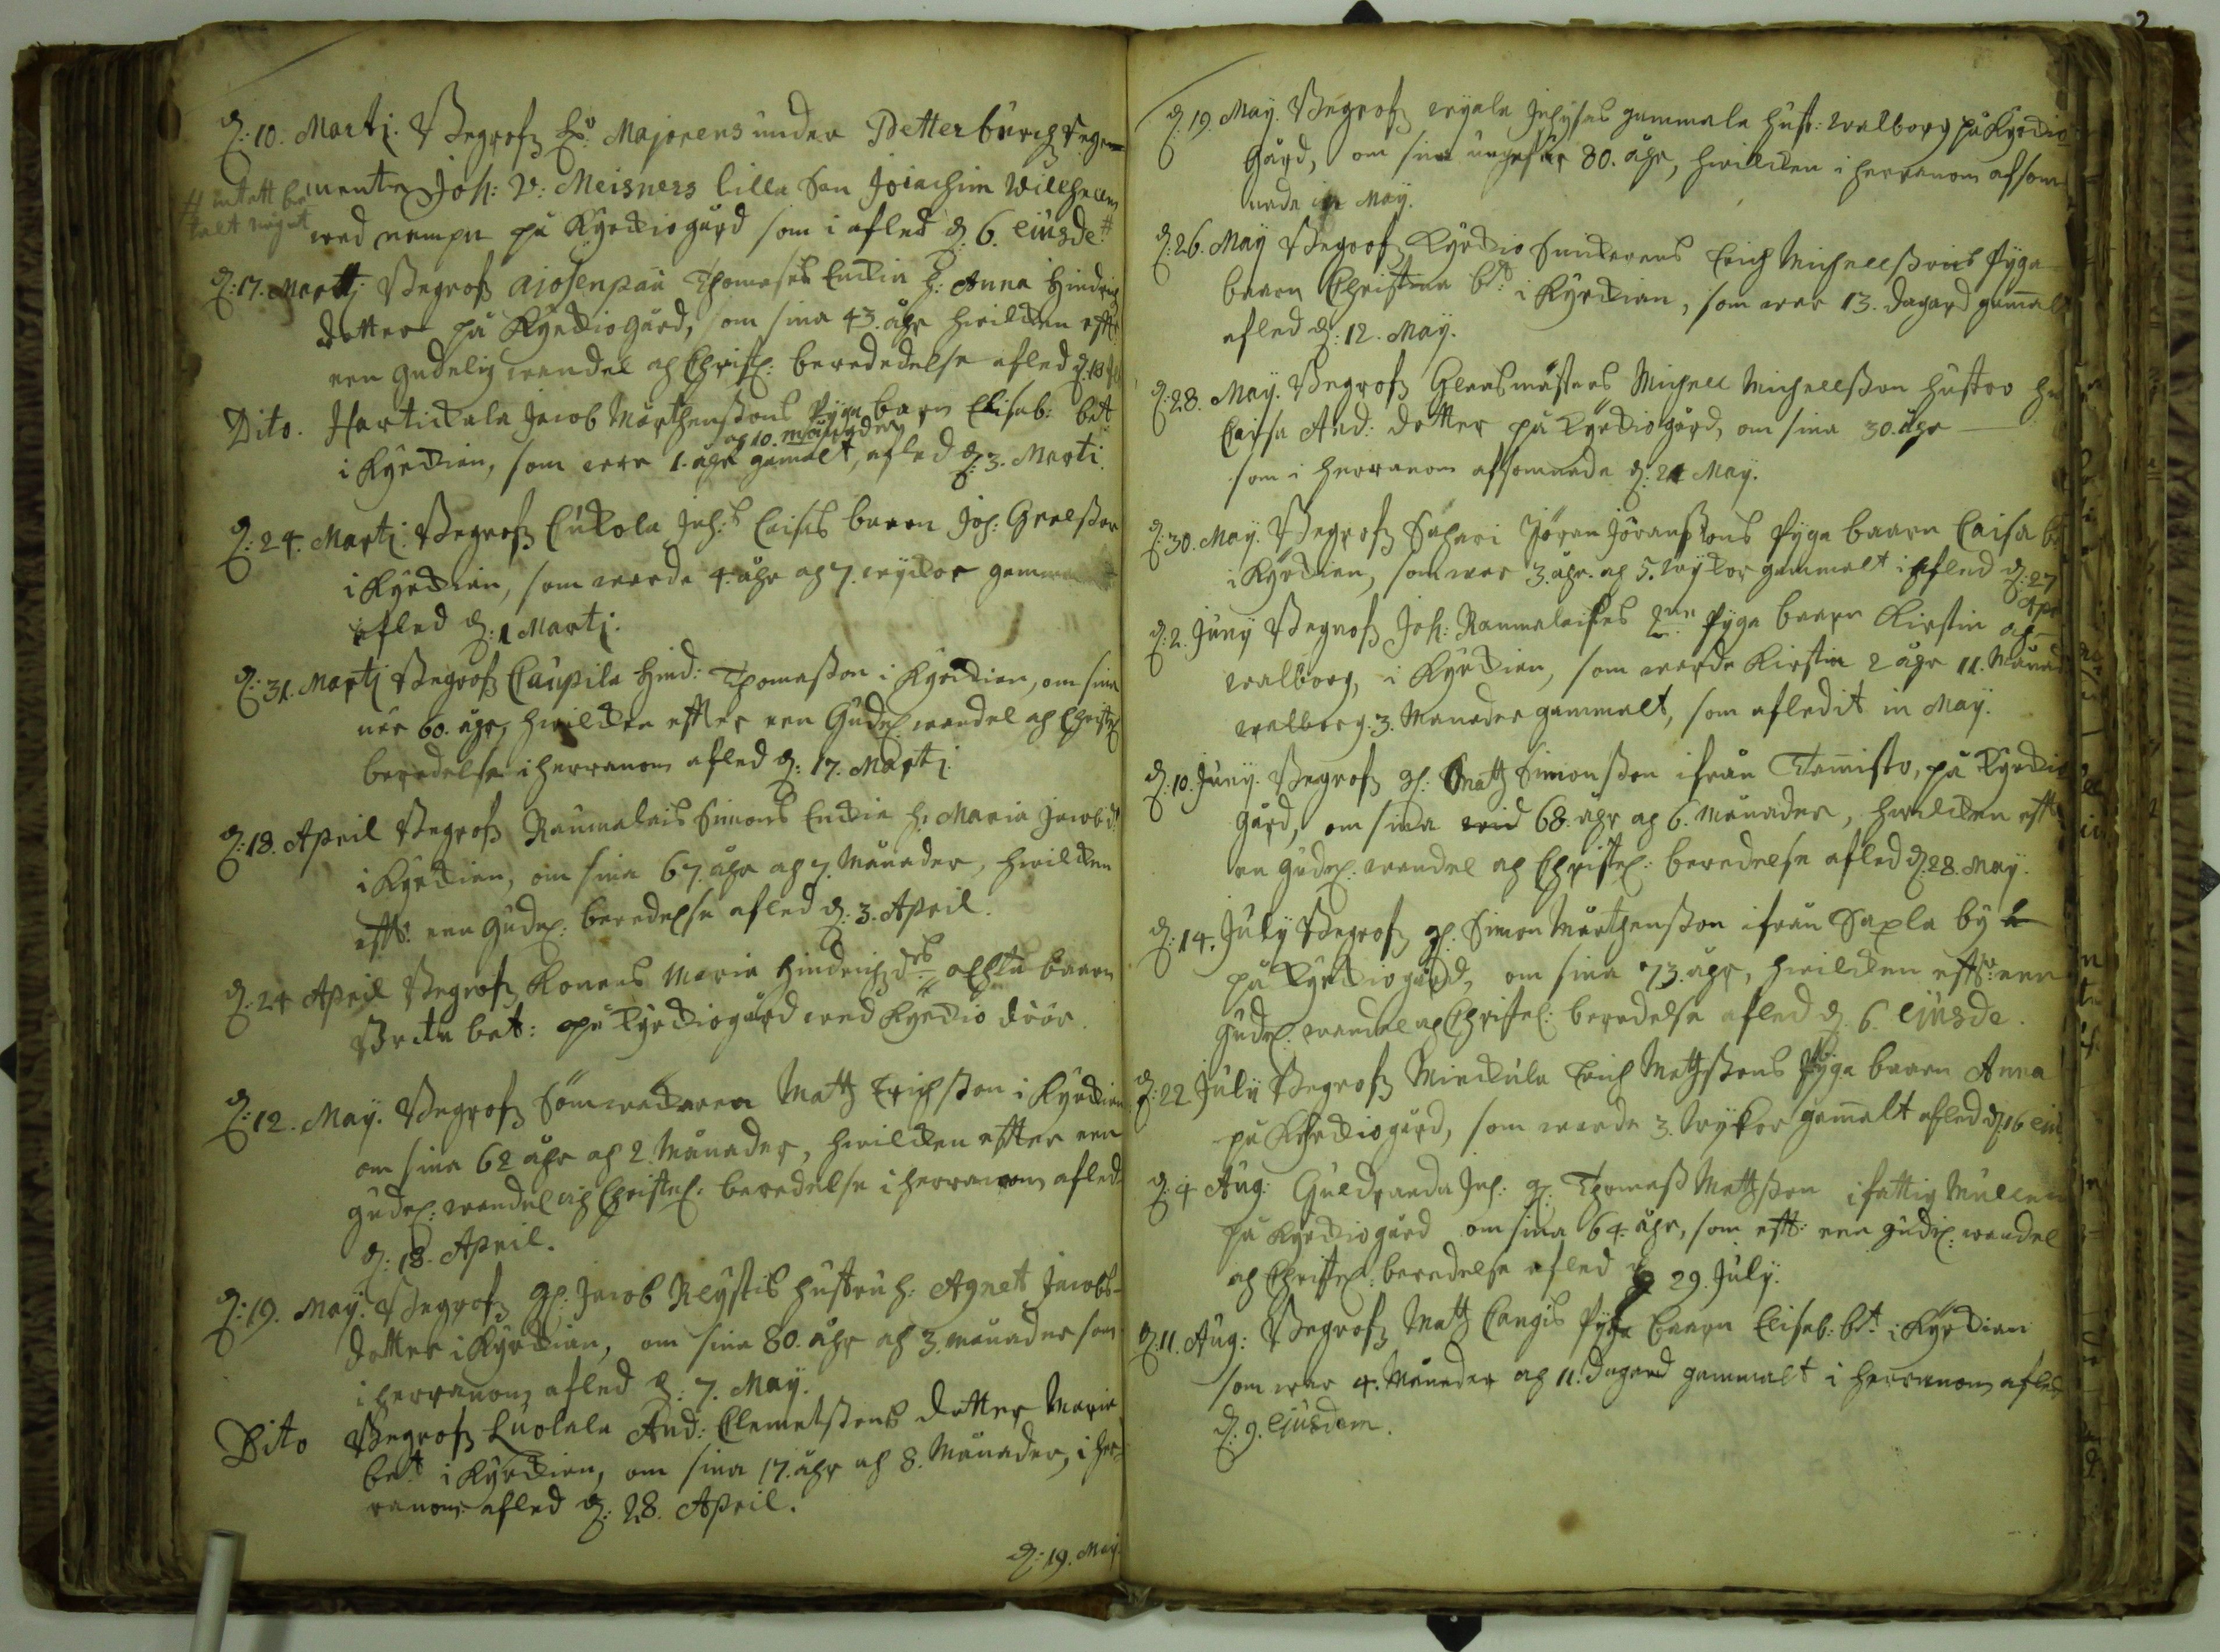 d: 10. Martj. Begrofz H:r Majorens under Petterburgz rege
# intett be mente Joh: V: Meisners lilla Son Joiachim Willhellm
talt något wed nampn på Kyrckiogård som i afled d. 6. Eiusde. #
d: 17. Martj Begrofz Thomases Enckia h: Anna Hindrich
dotter på Kyrckiogård, som sina 43. åhr hwilcken efft:
een gudelig wandel och Christ: beredelse afled d. 18
Dito. Jacob Mårthenssons Pyga barn Elisab: be:t
och 10. månader
i Kyrckian, som war 1. åhr gamalt, afled d: 3. Marti
d: 24. Martj. Begrofz Eukola Joh: Caisas baren Joh: Greelsson
i Kyrckian, som warde 4. åhr och 7. wyckor gammalt
afled d: 1 Martj.
d: 31. Martj Begrofz Caupila Hind: Thomasson i Kyrckian, om sina
när 60. åhr, hwilcken effter een Gudel: wandel och Christel
beredelse i herranom afled d: 17. Martj.
d: 18. April Begrofz Raumalais Simons Enckia h: Maria Jacobd:
i Kyrckian, om sina 67 åhr och 7. Månader, hwilcken
efft: een Gudel: beredelse afled d: 3. April.
d. 24 April Begrofz Konans Maria Hindrichz d:rs baren
Brita be:t: på Kyrckiogård wed Kyrckio döör.
d: 12. May. Begrofz Matz Erichsson i Kyrckian
om sina 62 åhr och 2. Månader, hwilcken effter een
gudel: wandel och Christel: beredelse i herranom afled
d: 18. April.
d: 19. May. Begrofz gl: Jacob Reystis hustru h: Agnet Jacobs-
dotter i Kyrckian, om sina 80. åhr och 3. månader som
i herranom afled d: 7. May.
Dito Begrofz Luolala And: Clemetssons dotter Maria
be:t i Kyrckian, om sina 17. åhr och 8. Månader, i her-
ranom afled d: 28. April.
d: 19. May.
d: 19. May. Begrofz gammala hust: Walborg på Kyrckio
gård, om sina ungefär 80. åhr, hwilcken i herranom afsom
nade in May.
d: 26. May Begrofz Kyrckio Snickarens Erich Michellssons Pyga
baren Christina b:t i Kyrckian, som war 13. dagard gamalt
afled d: 12. May.
d: 28. May. Begrofz Glaasmästars Michell Michellsson hustro h:
Caisa And: dotter på Kyrckiogård, om sina 30. åhr
som i herranom afsomnade d: 21 May.
d: 30. May. Begrofz Suhari Jöran Jöranssons Pyga baren Caisa be
i Kyrckian, som war 3. åhr och 5. wykor gammalt i afled d: 27
Apr
d: 2. Juny Begrofz Joh: Raumalaises 2:nn Pyga baren Kirstin och
Walborg, i Kyrckian, som warde Kirstin 2 åhr 11. Månad
Walborg 3. Månader gammalt, som afledit in May.
d: 10. Juny. Begrofz gl: Matz Simonsson ifrån Tamisto, på Kyrckio
gård, om sina wid 68. åhr och 6. Månader, hwilcken efft:
en gudel: wandel och Christel: beredelse afled d: 28. May.
d: 14. July Begrofz gl: Simon Mårthensson ifrån Saxla by
på Kyrckiogård, om sina 73. åhr, hwilcken efft: een
Gudel: wandel och Christel: beredelse afled d. 6. Ejusde.
d: 22 July Begrofz Minckula Erich Matzssons Pyga baren Anna
på Kyrckiogård, som warde 3. wykor gamalt afled d: 16 Eiu
d: 4 Aug: Guldranda Joh: gl: Thomass Matzsson i fattig Mullen
på Kyrckiogård om sina 64. åhr, som efft: een gudel: wandel
och Christel: beredelse afled d 29. July.
d: 11. Aug: Begrofz Matz Cangis Pyga baren Elisab: b:t i Kyrckian
som war 4. Månader och 11. dagard gammalt i herranom afled
d: 9. Ejusdem.